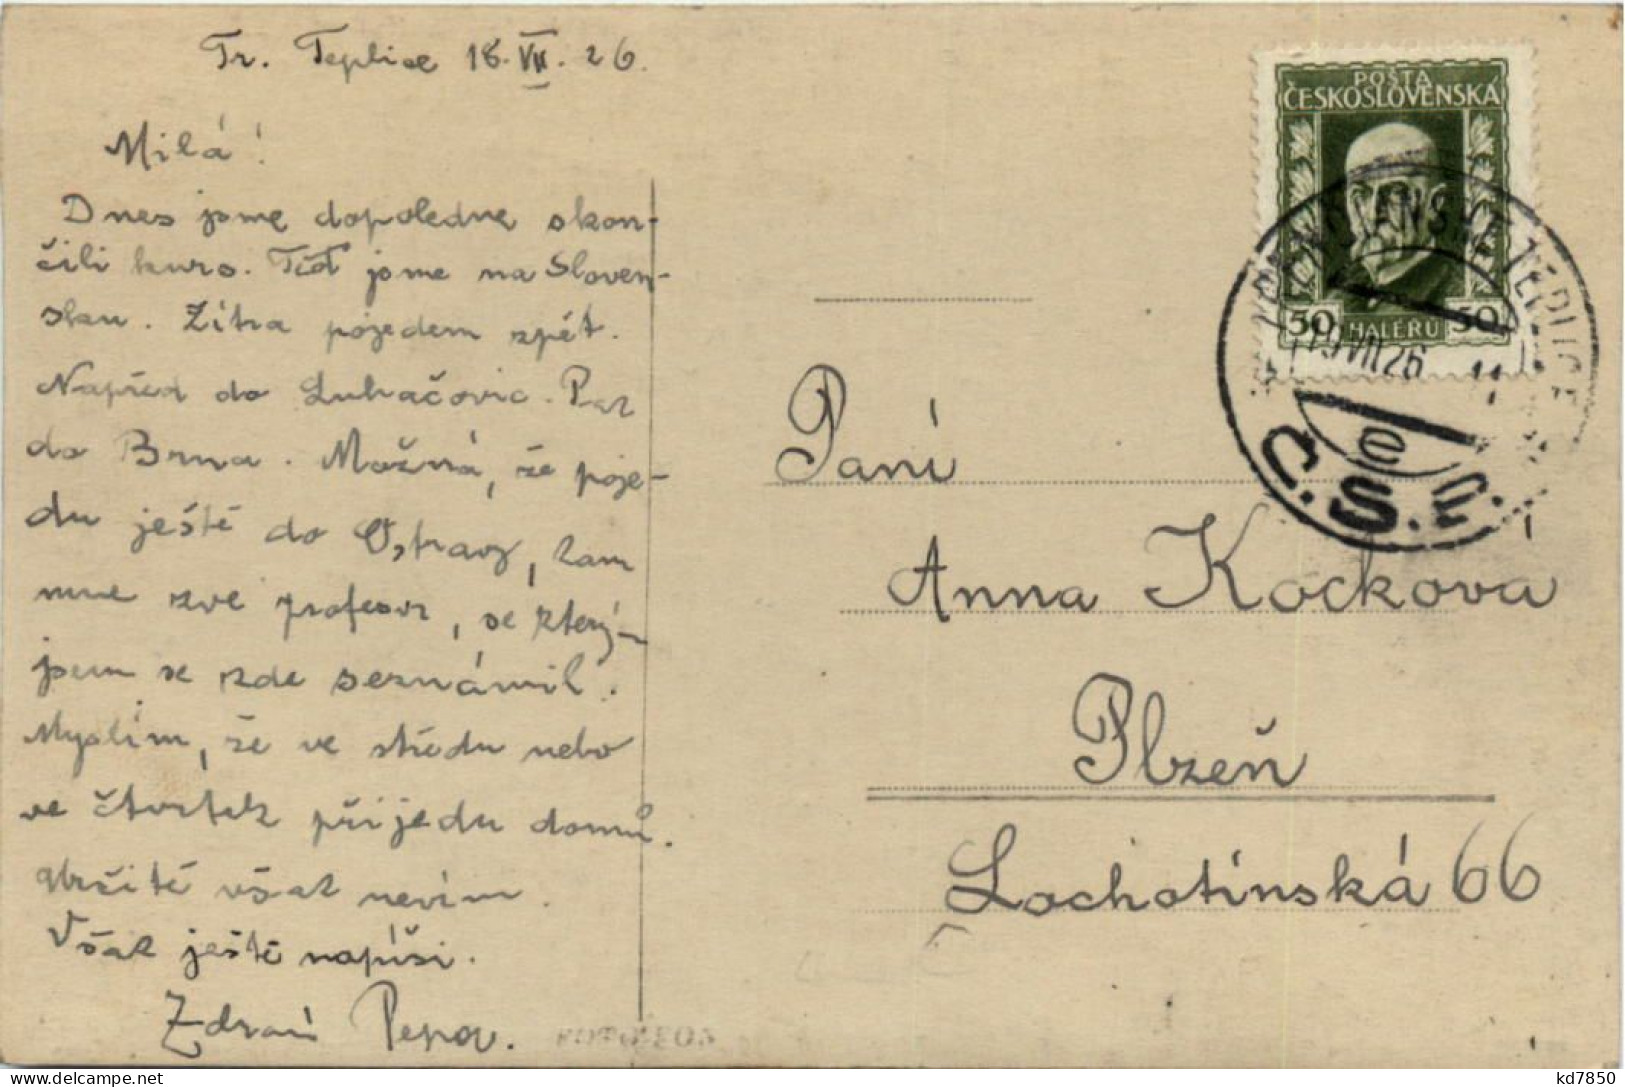 Tr. Teplice 18.VII.26.
Milá!
Dnes jsme dopoledne skon-
čili kurs. Teď jsme na Sloven-
sku. Zítra pojedem zpět.
Napřed do Luhačovic. Pak
do Brna. Možná, že poje-
du ještě do Ostravy, kam
mne zve profesor, se kterým
jsem se zde seznámil.
Myslím, že ve středu nebo
ve čtvrtek přijedu domů.
Určitě však nevím.
Však ještě napíši.
Zdraví Pepa.
POŠTA
ČESKOSLOVENSKÁ
50 HALÉŘŮ 50
TRENČIANSKE TEPLICE
19.VII.26 11
e
Č.S.P.
Paní
Anna Kocková
Plzeň
Lochotínská 66
kd7850